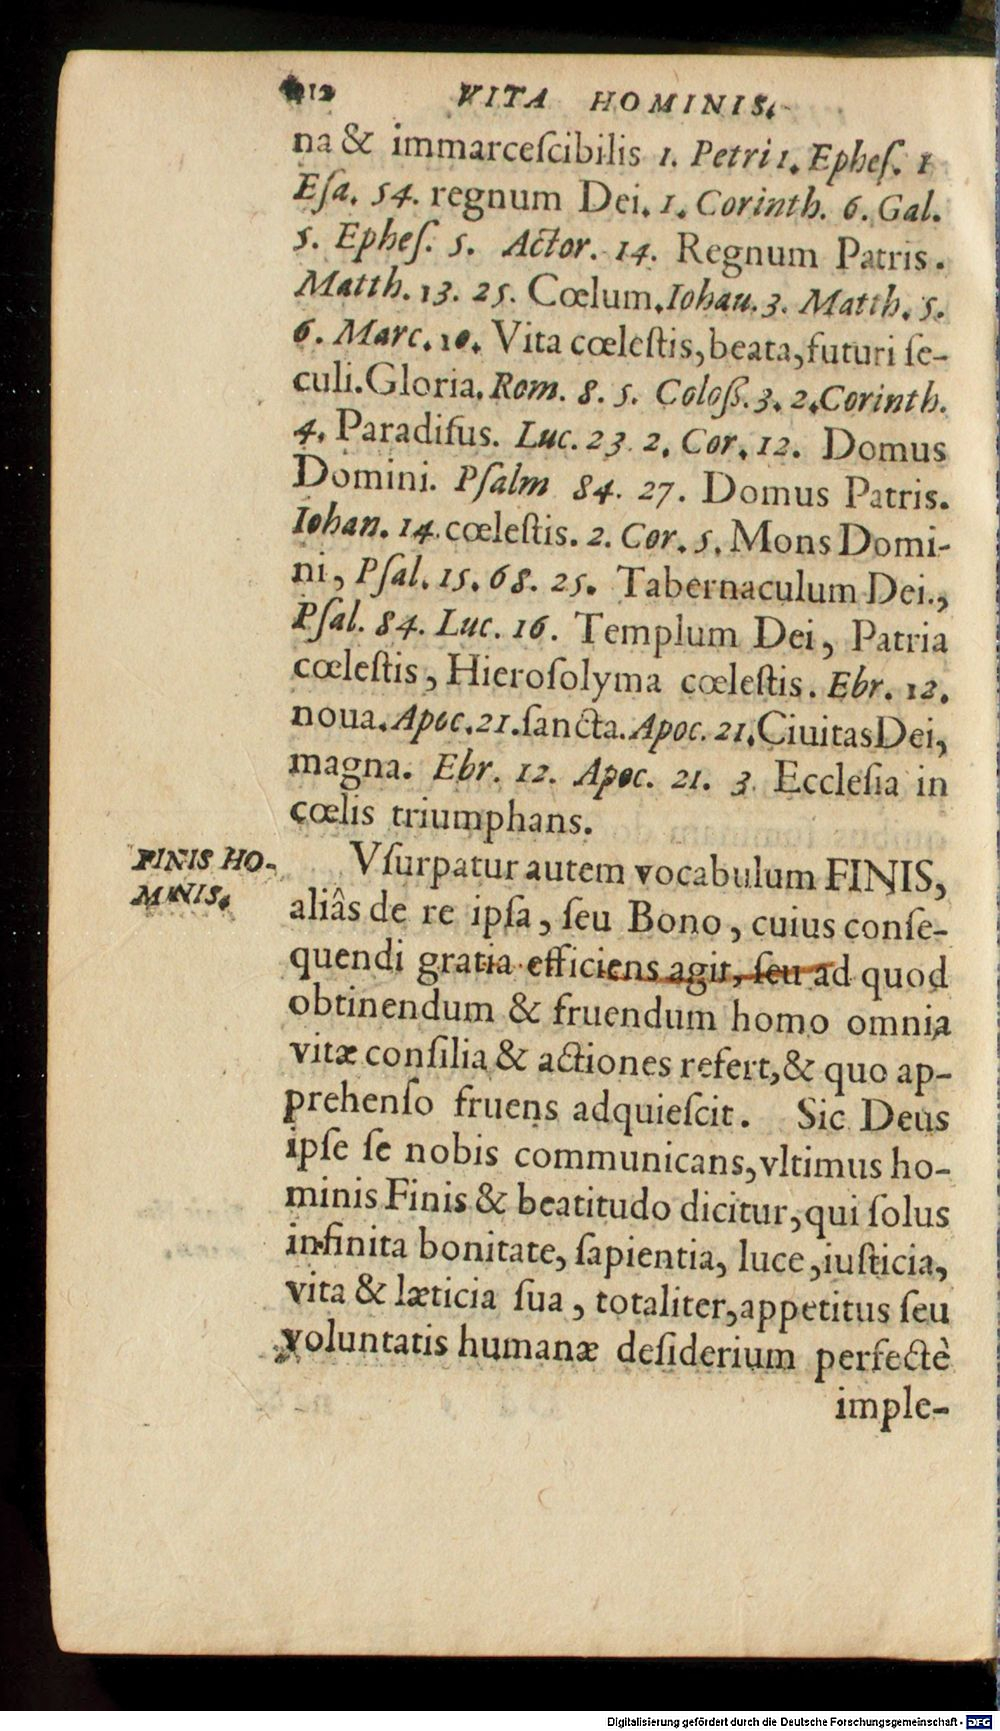 12 VITA HOMINIS.
na & immarceſcibilis 1. Petri 1. Epheſ. 1
Eſa. 54. regnum Dei. 1. Corinth. 6. Gal.
5. Epheſ. 5. Actor. 14. Regnum Patris.
Matth. 13. 25. Cœlum. Iohau. 3. Matth. 5.
6. Marc. 10. Vita cœleſtis, beata, futuri ſe-
culi. Gloria. Rom. 8. 5. Coloß. 3. 2. Corinth.
4. Paradiſus. Luc. 23. 2. Cor. 12. Domus
Domini. Pſalm 84. 27. Domus Patris.
Iohan. 14. cœleſtis. 2. Cor. 5. Mons Domi-
ni, Pſal. 15. 68. 25. Tabernaculum Dei.,
Pſal. 84. Luc. 16. Templum Dei, Patria
cœleſtis, Hieroſolyma cœleſtis. Ebr. 12.
noua. Apoc. 21. ſancta. Apoc. 21. Ciuitas Dei,
magna. Ebr. 12. Apoc. 21. 3. Eccleſia in
cœlis triumphans.
FINIS HO-
MINIS.
Vſurpatur autem vocabulum FINIS,
aliâs de re ipſa, ſeu Bono, cuius conſe-
quendi gratia efficiens agit, ſeu ad quod
obtinendum & fruendum homo omnia
vitæ conſilia & actiones refert, & quo ap-
prehenſo fruens adquieſcit. Sic Deus
ipſe ſe nobis communicans, vltimus ho-
minis Finis & beatitudo dicitur, qui ſolus
infinita bonitate, ſapientia, luce, iuſticia,
vita & læticia ſua, totaliter, appetitus ſeu
voluntatis humanæ deſiderium perfectè
imple-
Digitalisierung gefördert durch die Deutsche Forschungsgemeinschaft - DFG